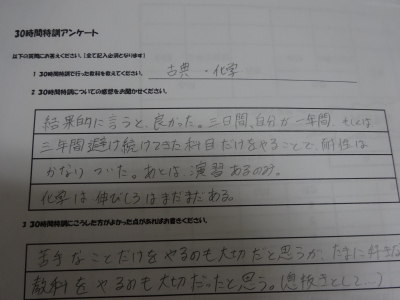 30時間特訓アンケート
以下の質問にお答えください。(全て記入必須となります)
1 30時間特訓で行った教科を教えてください。 古典・化学
2 30時間特訓についての感想をお聞かせください。
結果的に言うと、良かった。三日間、自分が一年間、もしくは
三年間避け続けてきた科目だけをやることで、耐性は
かなりついた。あとは、演習あるのみ。
化学は伸びしろはまだまだある。
3 30時間特訓にこうした方がよかった点があればお書きください。
苦手なことだけをやるのも大切だと思うが、たまに好きな
教科をやるのも大切だったと思う。(息抜きとして...)